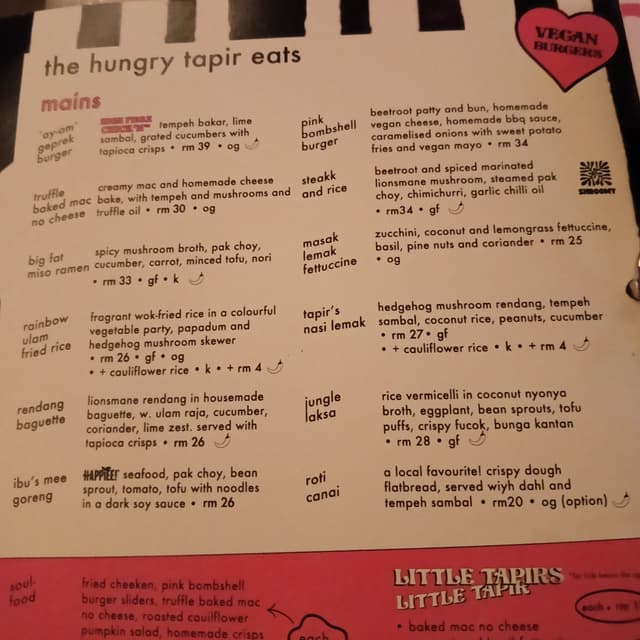 the hungry tapir eats
VEGAN
BURGERS
mains
'ay-am'
geprek
burger
tempeh bakar, lime
sambal, grated cucumbers with
tapioca crisps • rm 39 • og
truffle
baked mac
no cheese
creamy mac and homemade cheese
bake, with tempeh and mushrooms and
truffle oil • rm 30 • og
big fat
miso ramen
spicy mushroom broth, pak choy,
cucumber, carrot, minced tofu, nori
• rm 33 • gf • k
rainbow
ulam
fried rice
fragrant wok-fried rice in a colourful
vegetable party, papadum and
hedgehog mushroom skewer
• rm 26 • gf • og
• + cauliflower rice • k • + rm 4
rendang
baguette
lionsmane rendang in housemade
baguette, w. ulam raja, cucumber,
coriander, lime zest. served with
tapioca crisps • rm 26
ibu's mee
goreng
HAPPIEE! seafood, pak choy, bean
sprout, tomato, tofu with noodles
in a dark soy sauce • rm 26
pink
bombshell
burger
beetroot patty and bun, homemade
vegan cheese, homemade bbq sauce,
caramelised onions with sweet potato
fries and vegan mayo • rm 34
steakk
and rice
beetroot and spiced marinated
lionsmane mushroom, steamed pak
choy, chimichurri, garlic chilli oil
• rm34 • gf
SHROOMY
masak
lemak
fettuccine
zucchini, coconut and lemongrass fettuccine,
basil, pine nuts and coriander • rm 25
• og
tapir's
nasi lemak
hedgehog mushroom rendang, tempeh
sambal, coconut rice, peanuts, cucumber
• rm 27 • gf
• + cauliflower rice • k • + rm 4
jungle
laksa
rice vermicelli in coconut nyonya
broth, eggplant, bean sprouts, tofu
puffs, crispy fucok, bunga kantan
• rm 28 • gf
roti
canai
a local favourite! crispy dough
flatbread, served wiyh dahl and
tempeh sambal • rm20 • og (option)
soul-
food
fried cheeken, pink bombshell
burger sliders, truffle baked mac
no cheese, roasted cauliflower
pumpkin salad, homemade crisps
each
LITTLE TAPIRS
LITTLE TAPIR
each • rm
• baked mac no cheese